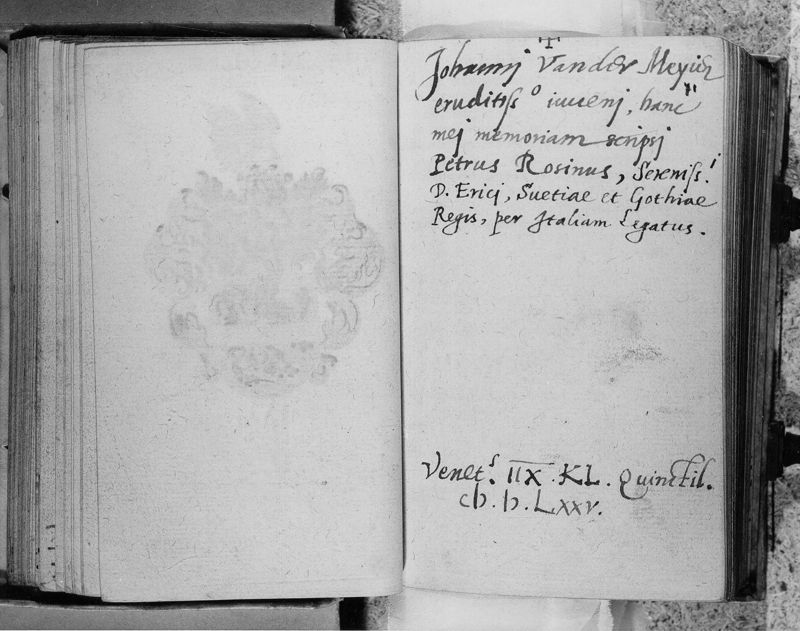 Johannj Vander Meyië
eruditiss.o iuuenj, hanc
mej memoriam scripsj
Petrus Rosinus, Sereniss.i
D. Ericj, Suetiae et Gothiae
Regis, per Italiam Legatus.
Venet.s IIX. KL. Quinctil.
cIɔ. Iɔ. Lxxv.